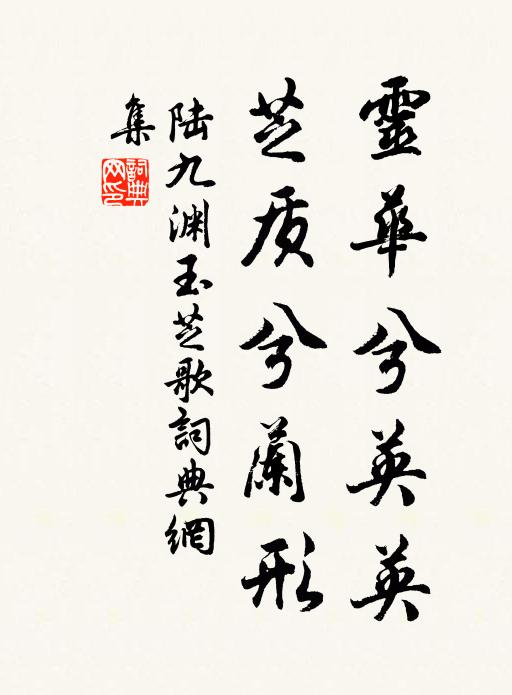 靈華兮英英
芝质兮蘭形
陆九渊玉芝歌詞典網
集
詞典
网印